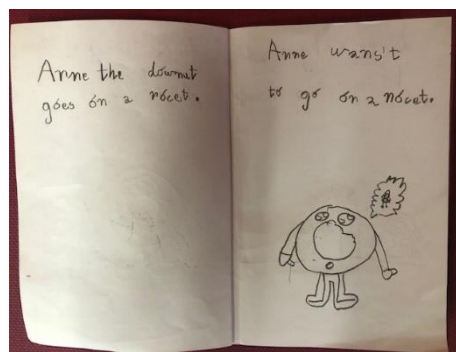 Anne the downut
goes on a rocet.
Anne wans't
to go on a rocet.